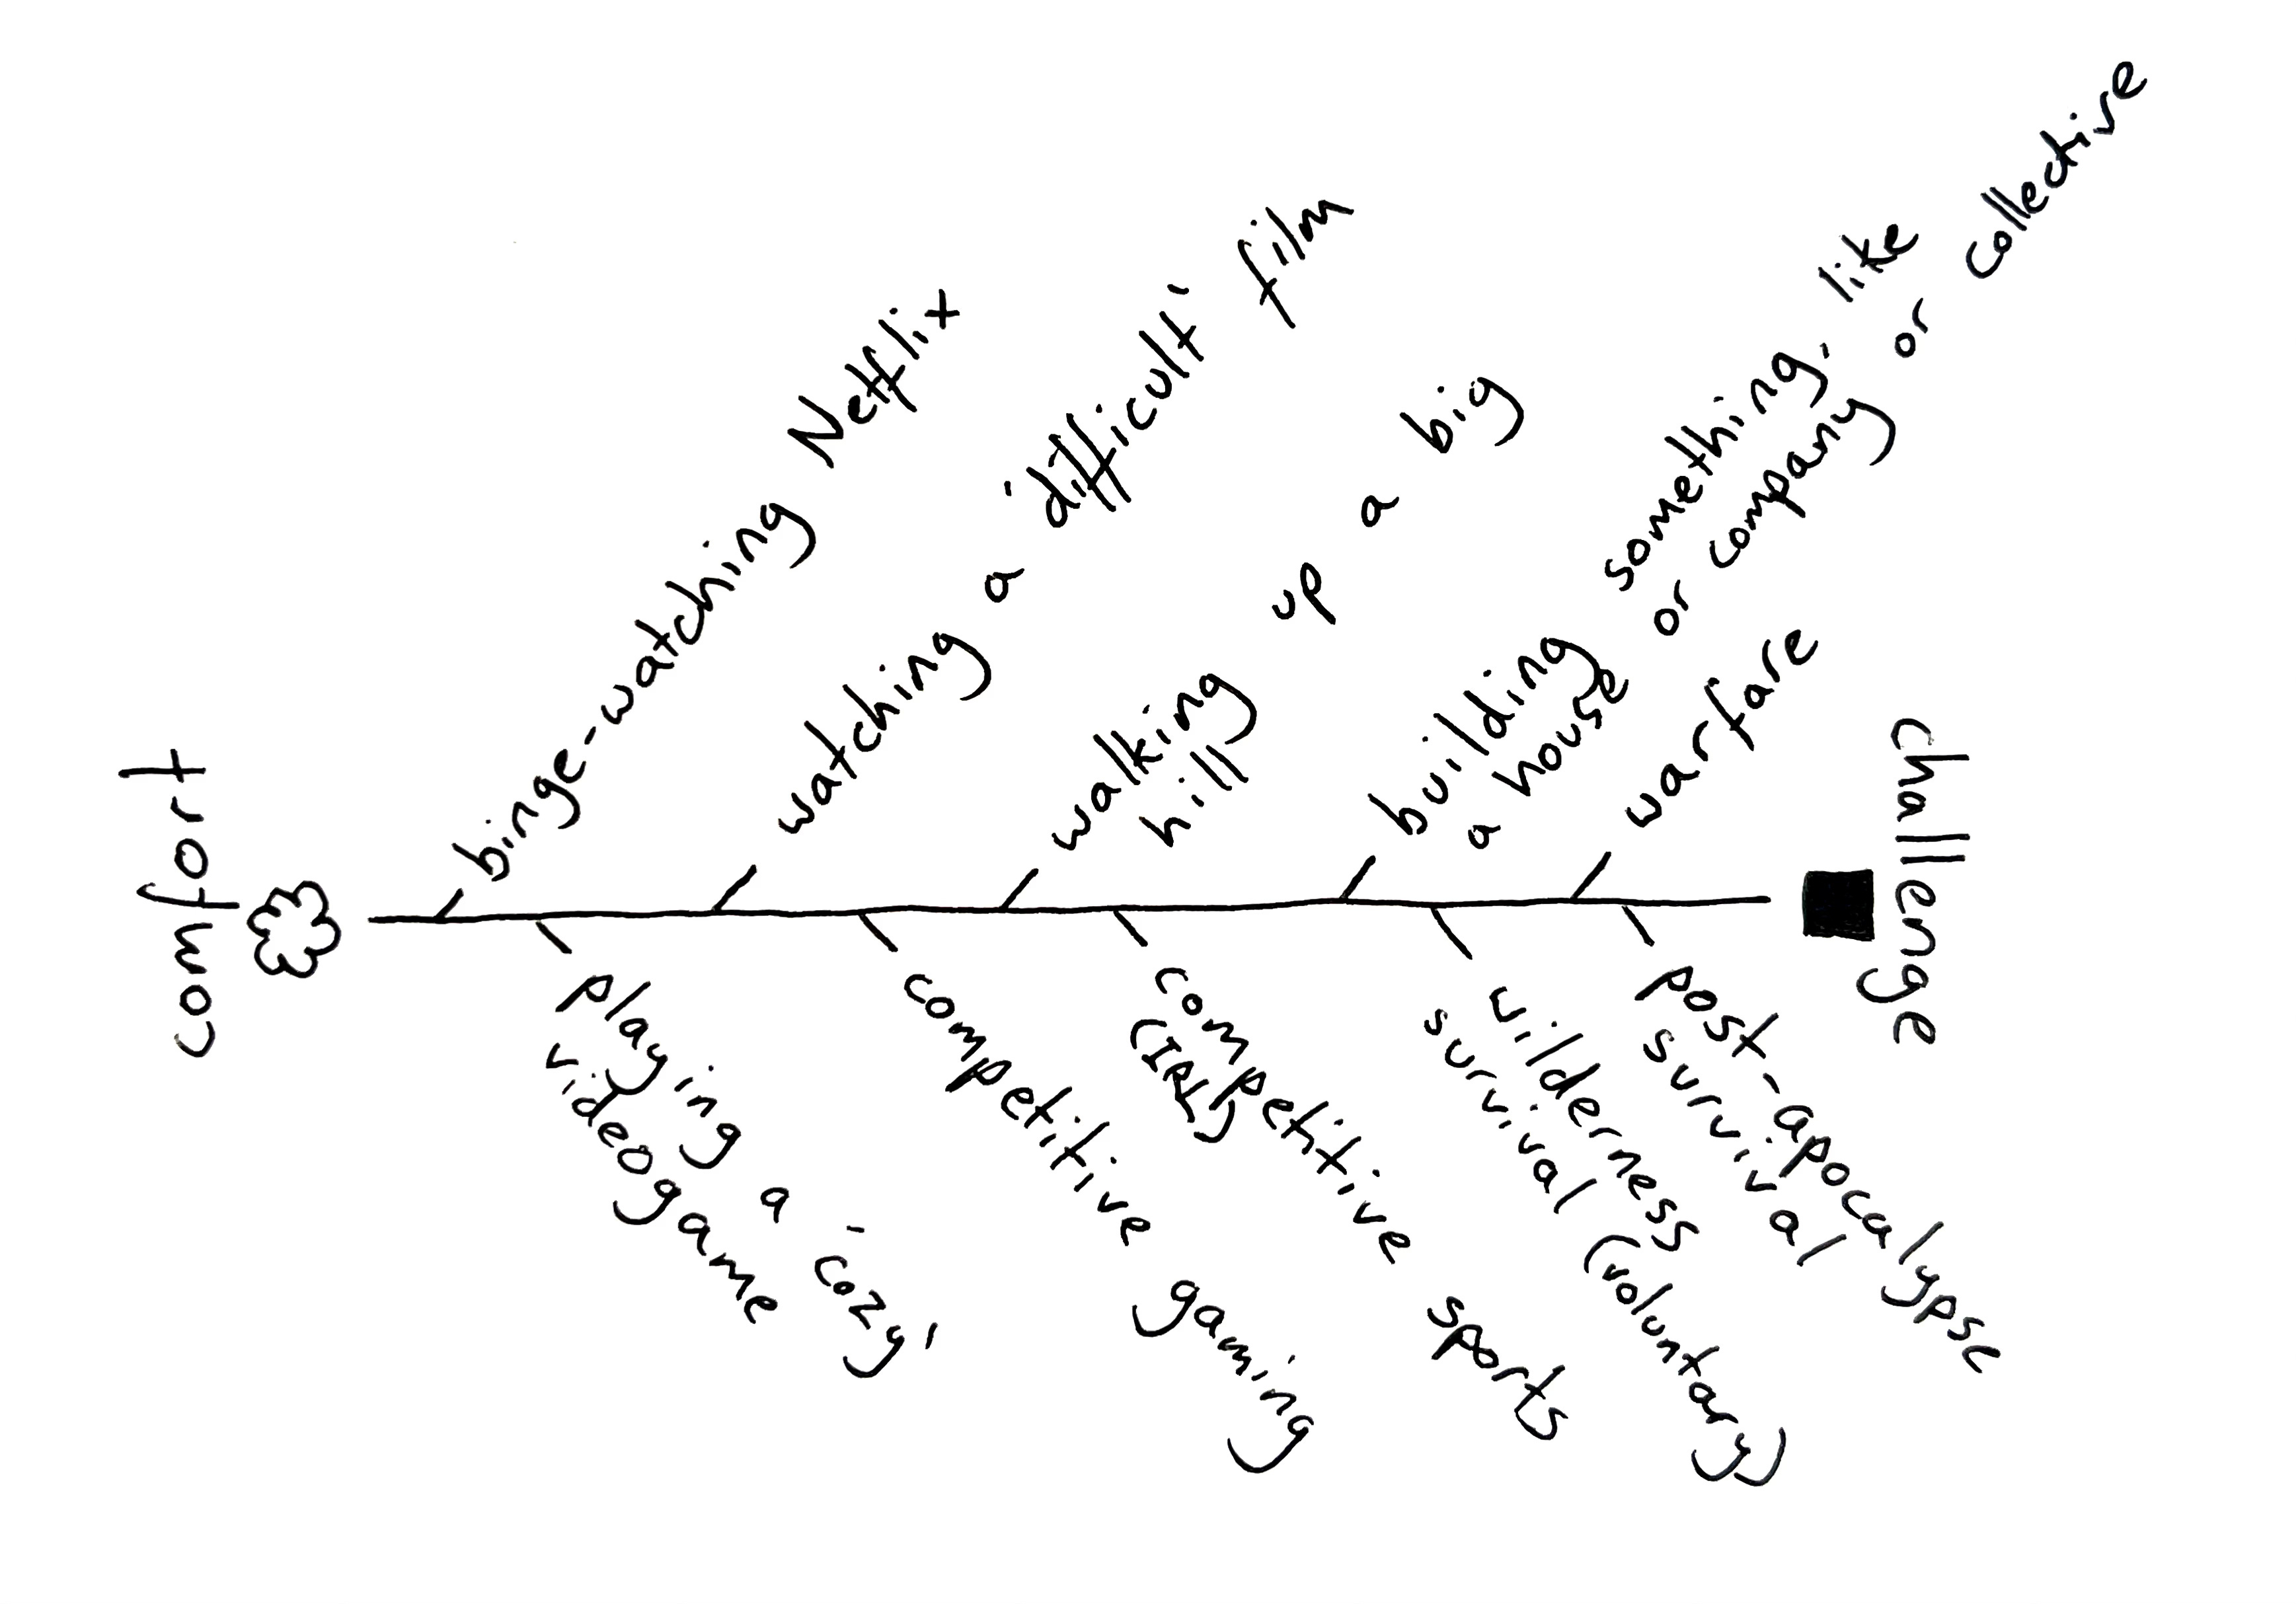 comfort
binge-watching Netflix
watching a 'difficult' film
walking up a big
hill
building something, like
a house or company or collective
warfare
challenge
playing a 'cozy'
videogame
competitive gaming
competitive sports
(IRL)
wilderness
survival (voluntary)
post-apocalypse
survival